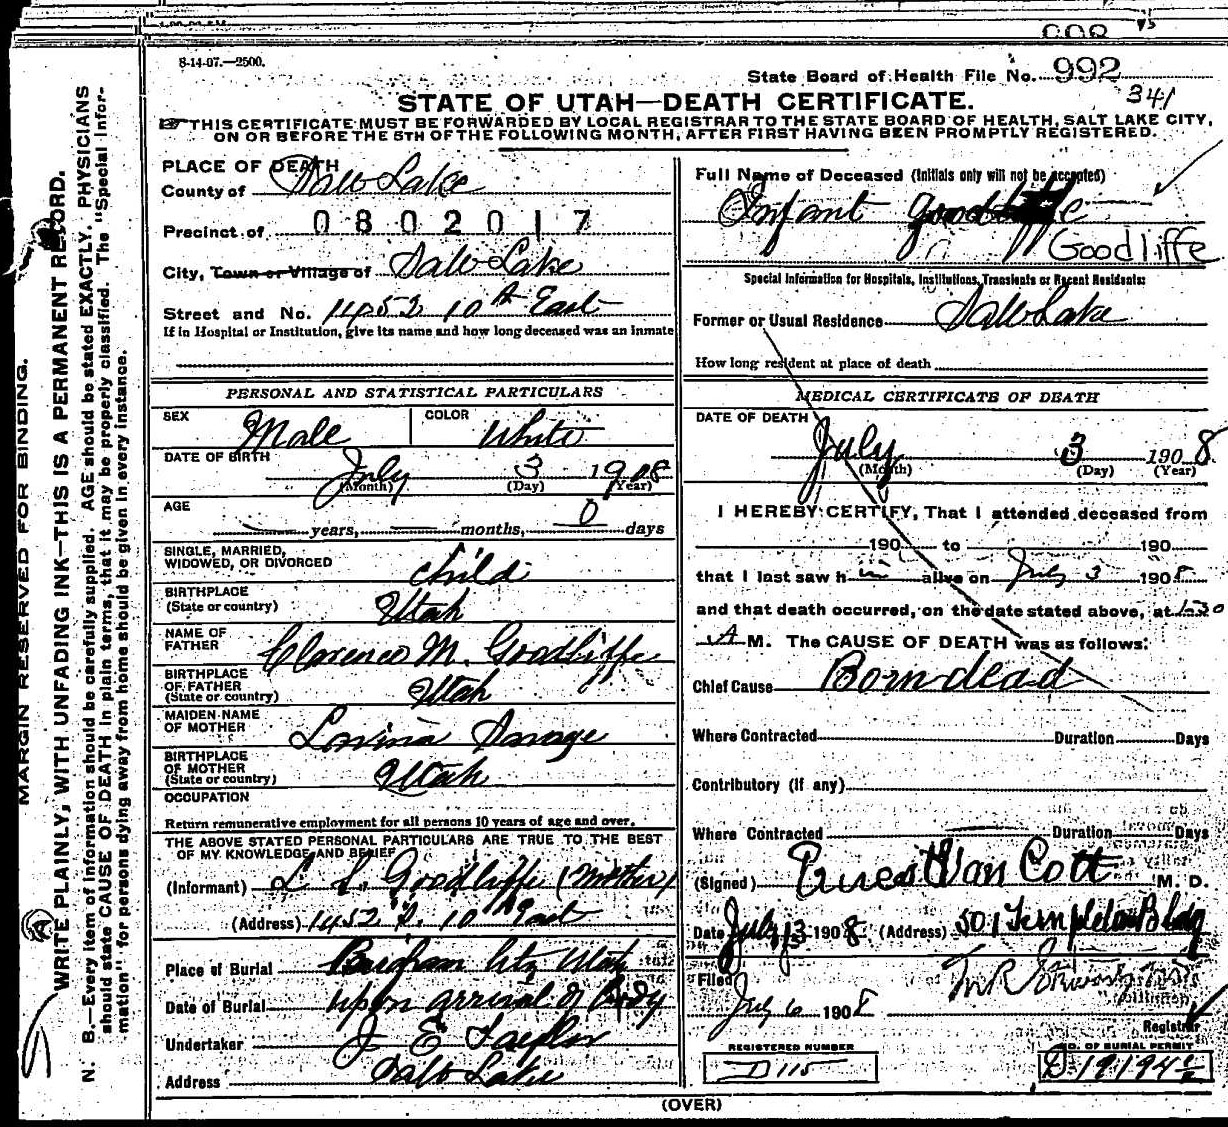 8-14-07.—2500.
State Board of Health File No. 992
341
STATE OF UTAH—DEATH CERTIFICATE.
THIS CERTIFICATE MUST BE FORWARDED BY LOCAL REGISTRAR TO THE STATE BOARD OF HEALTH, SALT LAKE CITY,
ON OR BEFORE THE 5TH OF THE FOLLOWING MONTH, AFTER FIRST HAVING BEEN PROMPTLY REGISTERED.
PLACE OF DEATH
County of Salt Lake
Precinct of 0802017
City, Town or Village of Salt Lake
Street and No. 1452 10th East
If in Hospital or Institution, give its name and how long deceased was an inmate
Full Name of Deceased (Initials only will not be accepted)
Infant
Goodliffe
Special Information for Hospitals, Institutions, Transients or Recent Residents:
Former or Usual Residence Salt Lake
How long resident at place of death
PERSONAL AND STATISTICAL PARTICULARS
SEX Male COLOR White
DATE OF BIRTH
July 3 1908
(Month) (Day) (Year)
AGE
years, months, 0 days
SINGLE, MARRIED,
WIDOWED, OR DIVORCED child
BIRTHPLACE
(State or country) Utah
NAME OF
FATHER Clarence M. Goodliffe
BIRTHPLACE
OF FATHER
(State or country) Utah
MAIDEN NAME
OF MOTHER Lovinia Savage
BIRTHPLACE
OF MOTHER
(State or country) Utah
OCCUPATION
Return remunerative employment for all persons 10 years of age and over.
THE ABOVE STATED PERSONAL PARTICULARS ARE TRUE TO THE BEST
OF MY KNOWLEDGE AND BELIEF
(Informant) L S. Goodliffe (Mother)
(Address) 1452 10th East
Place of Burial Brigham City Utah
Date of Burial Upon arrival of Body
Undertaker J E Taylor
Address Salt Lake
MEDICAL CERTIFICATE OF DEATH
DATE OF DEATH
July 3 1908
(Month) (Day) (Year)
I HEREBY CERTIFY, That I attended deceased from
190 to 190
that I last saw him alive on July 3 1908
and that death occurred, on the date stated above, at 1:30
A M. The CAUSE OF DEATH was as follows:
Chief Cause Born dead
Where Contracted Duration Days
Contributory (if any)
Where Contracted Duration Days
(Signed) Van Cott M. D.
Date July 3 1908 (Address) 501 Templeton Bldg
Filed
July 6 1908
Registrar
REGISTERED NUMBER
D 115
NO. OF BURIAL PERMIT
D 19194 1/2
(OVER)
MARGIN RESERVED FOR BINDING.
WRITE PLAINLY, WITH UNFADING INK—THIS IS A PERMANENT RECORD.
N. B.—Every item of information should be carefully supplied. AGE should be stated EXACTLY. PHYSICIANS
should state CAUSE OF DEATH in plain terms, that it may be properly classified. The "Special Infor-
mation" for persons dying away from home should be given in every instance.